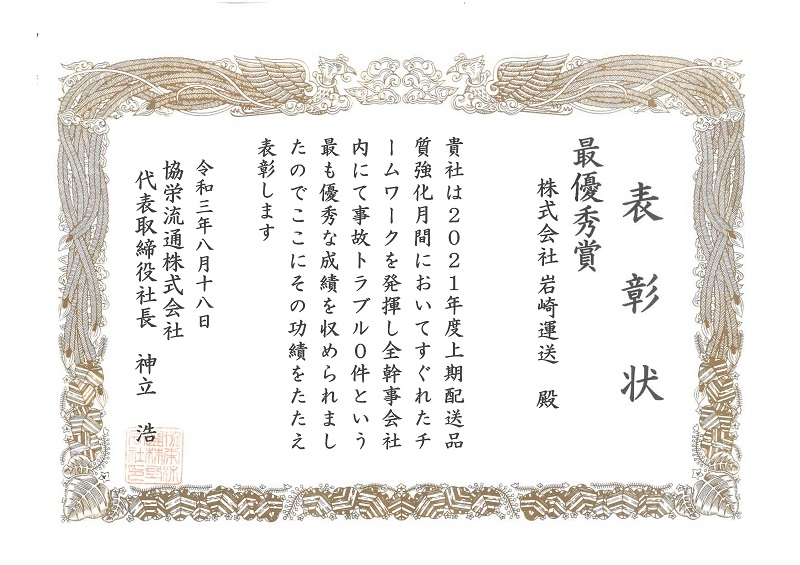 表彰状
最優秀賞
株式会社 岩崎運送 殿
貴社は2021年度上期配送品
質強化月間においてすぐれたチ
ームワークを発揮し全幹事会社
内にて事故トラブル0件という
最も優秀な成績を収められまし
たのでここにその功績をたたえ
表彰します
令和三年八月十八日
協栄流通株式会社
代表取締役社長 神立 浩